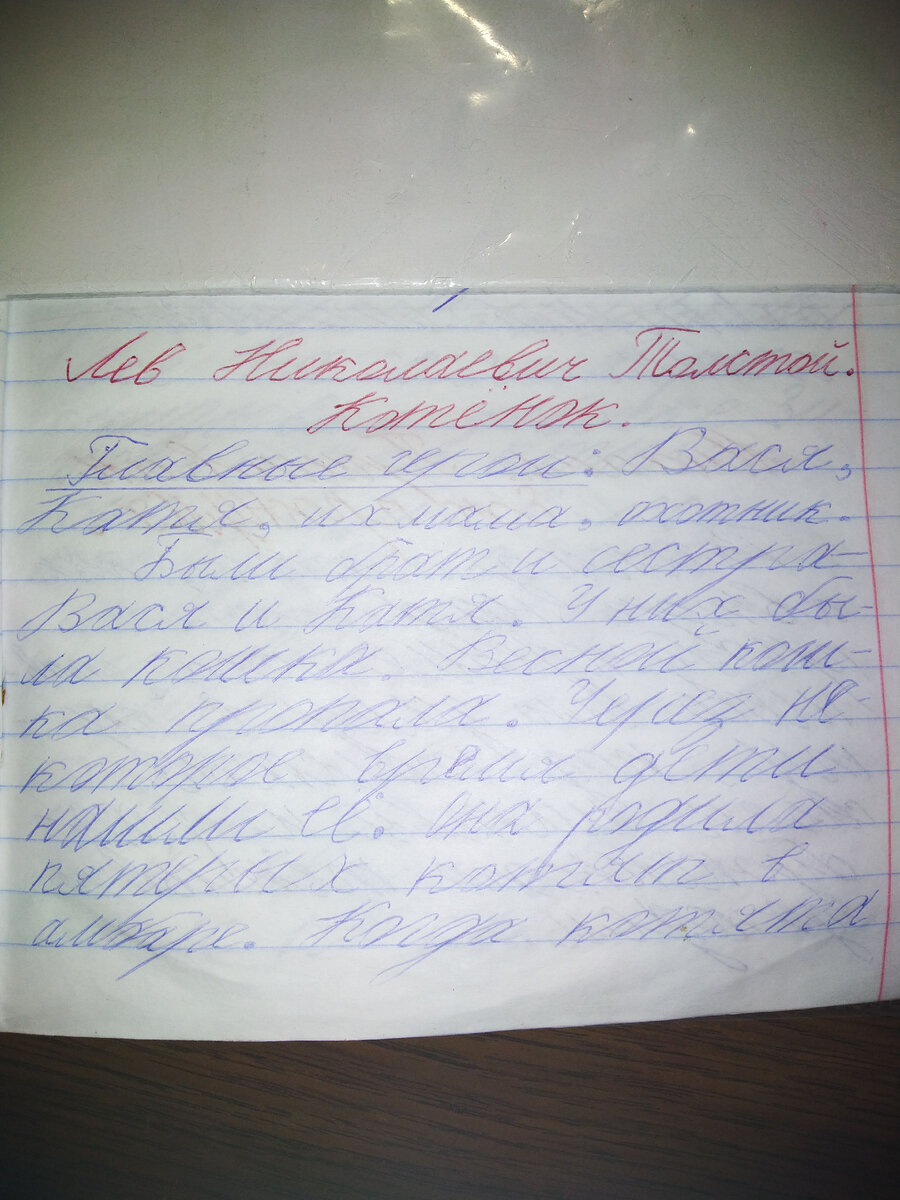 Лев Николаевич Толстой.
Котёнок.
Главные герои: Вася,
Катя, их мама, охотник.
Были брат и сестра -
Вася и Катя. У них бы-
ла кошка. Весной кош-
ка пропала. Через не-
которое время дети
нашли её. Она родила
пятерых котят в
амбаре. Когда котята